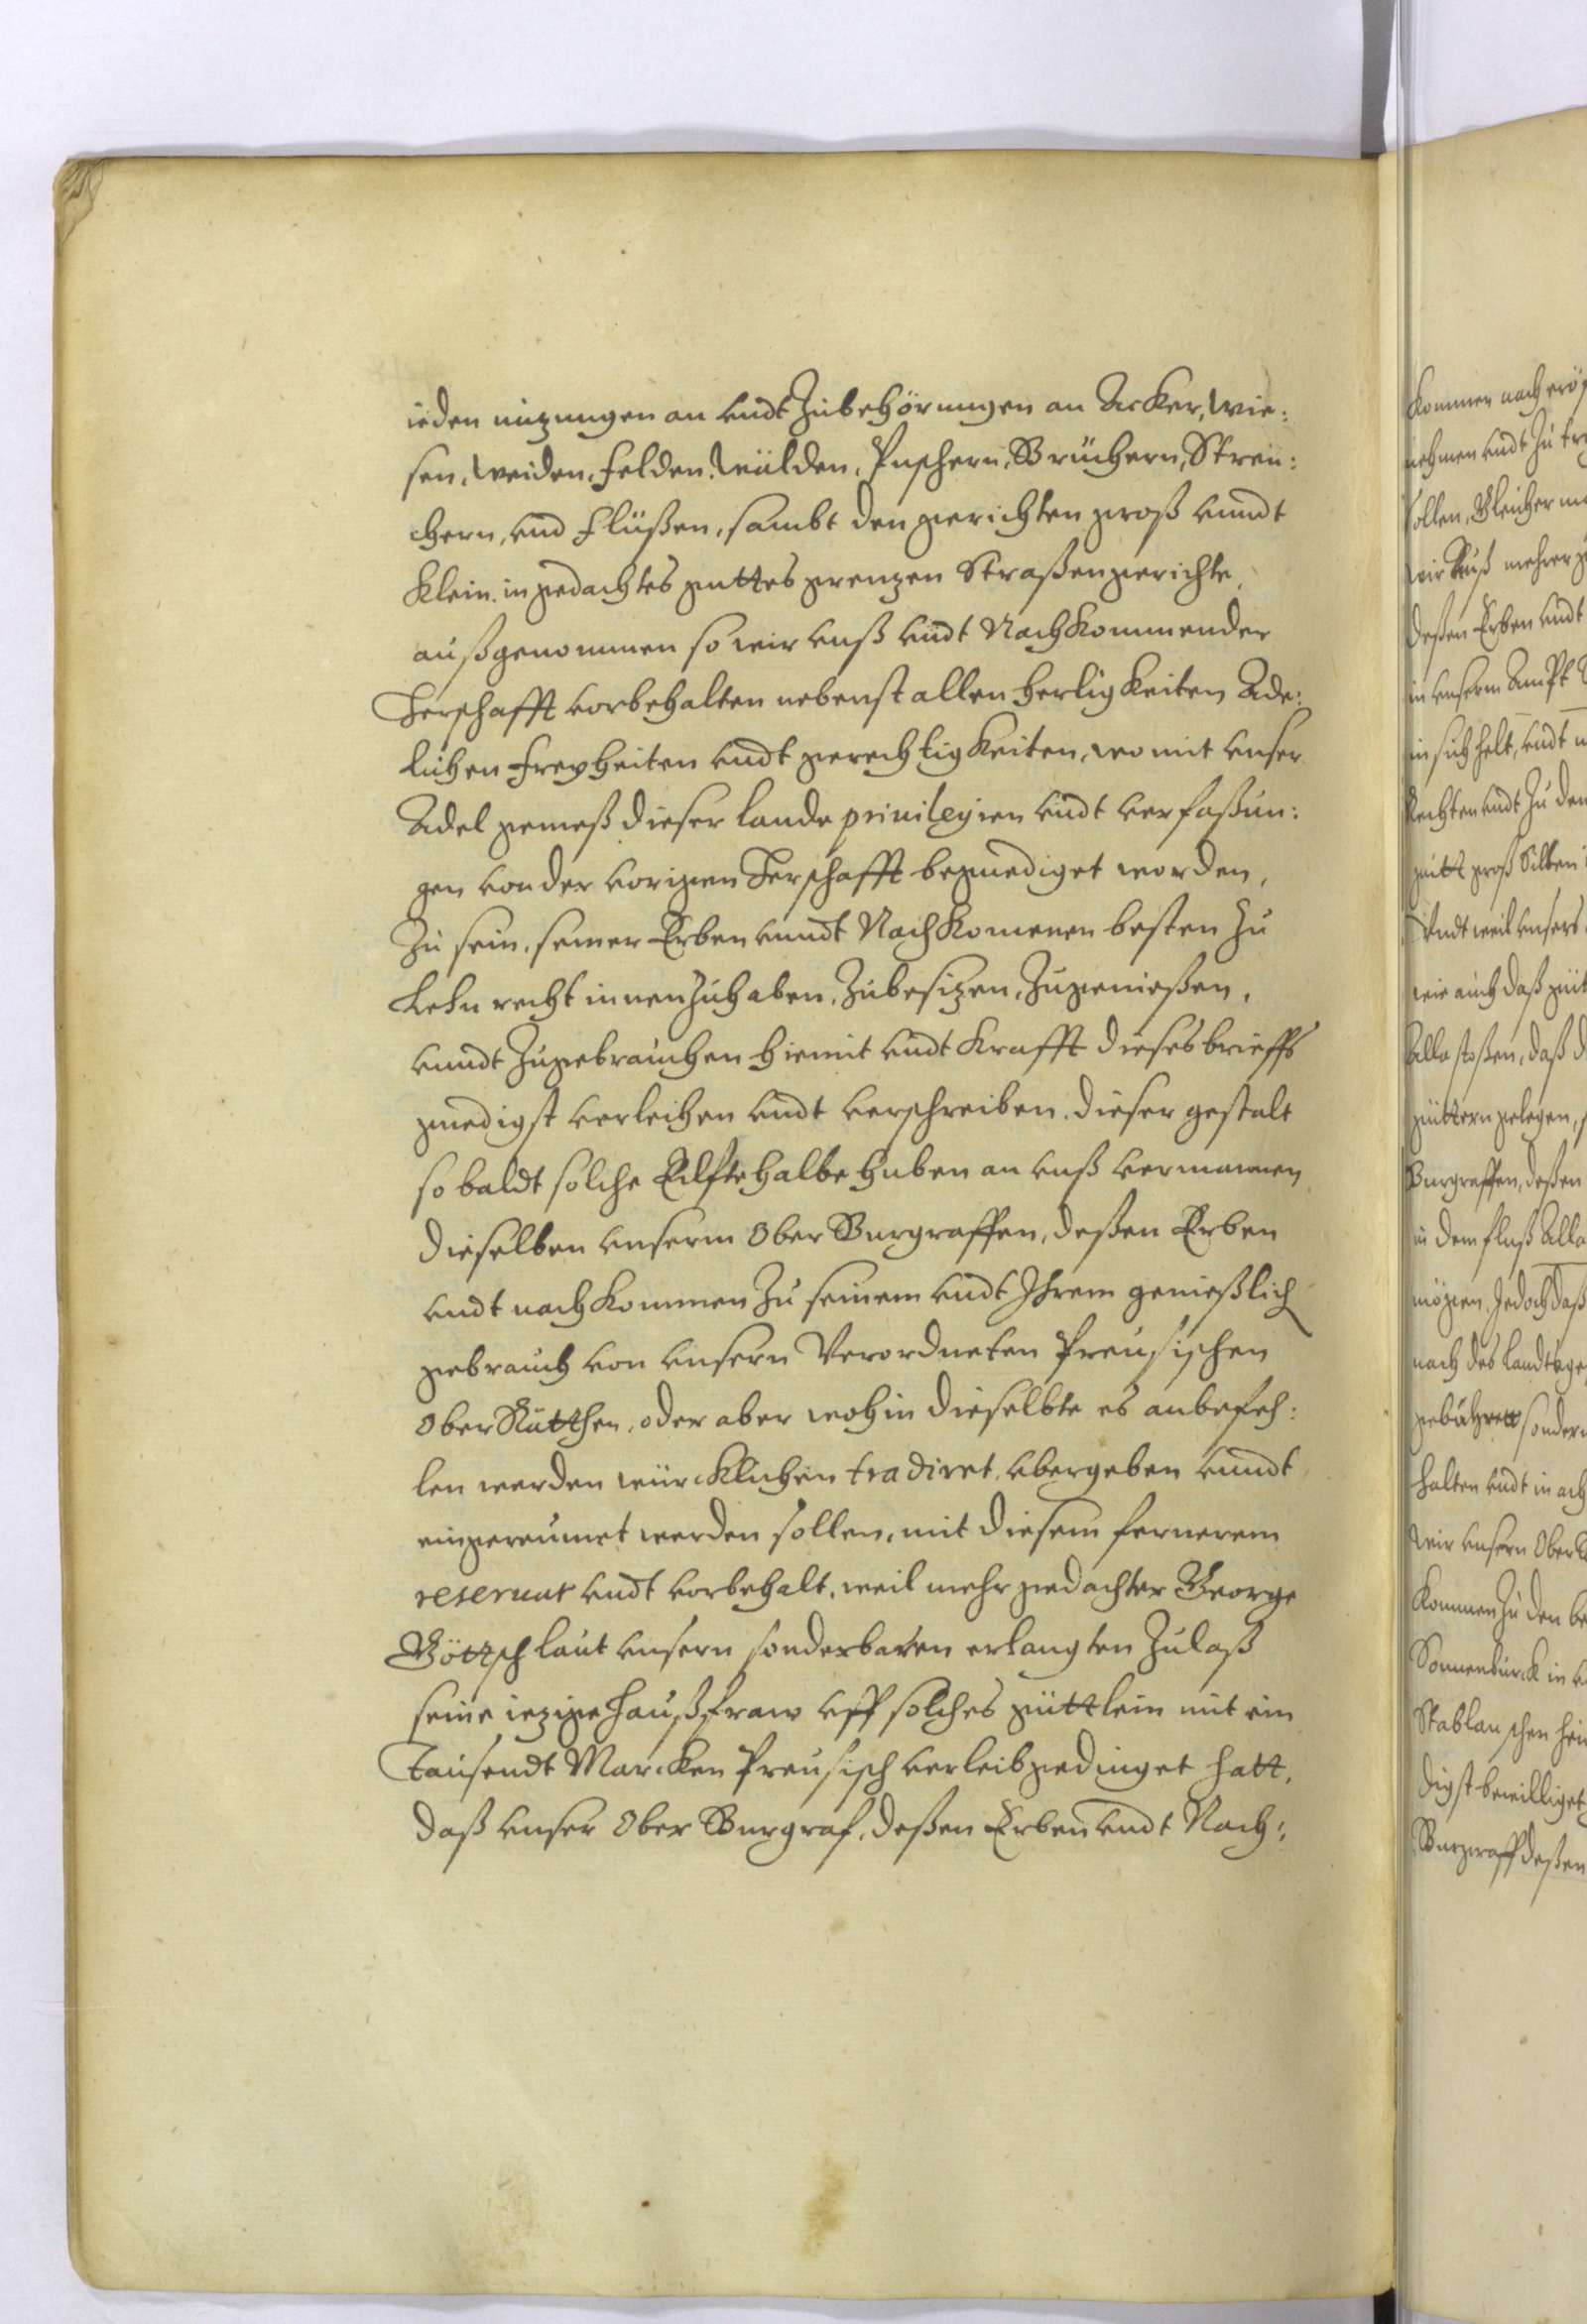 ieden nuzungen an undt Zubehörungen an Acker, wie:
sen, weiden, felden, wälden, Püschern, Brüchern, Streü:
chern, und flüßen, sambt den gerichten groß unndt
Klein, in gedachtes guttes grenzen Straßengerichte,
außgenommen so wir unß undt Nachkommender
Herschafft vorbehalten nebenst allen herligkeiten Ade:
lichen freyheiten undt gerechtigkeiten, wo mit unser
Adel gemeß dieser lande privilegien undt verfaßun:
gen von der vorigen Herschafft begnediget worden,
Zu sein, seiner Erben unndt Nachkomenen besten Zu
Lehn recht innen Zuhaben, Zubesizen, Zugenießen,
unndt Zugebrauchen hiemit undt Krafft dieses brieffs
gnedigst verleihen undt verschreiben. dieser gestalt
so baldt solche Eilftehalbe huben an unß vermannen
dieselben unserm Ober Burgraffen, deßen Erben
undt nachkommen Zu seinem undt Ihrem genießlich
gebrauch von unsern Verordneten Preusischen
Ober Räthen, oder aber wohin dieselbte es anbefeh:
len werden würcklichen tradiret, ubergeben unndt
eingereumet werden sollen, mit diesem fernerem
reservat undt vorbehalt, weil mehrgedachter George
Götzsch laut unsern sonderbaren erlangten Zulaß
seine iezige haußfraw uff solches güttlein mit ein
Tausendt Marcken Preusisch verleibgedinget hatt,
daß unser Ober Burgraf, deßen Erben undt Nach:
kommen nach
nehmen undt Zu
sollen, Gleicher
wir Auß mehrer
deßen Erben undt
in unserm Ampt
in sich helt, undt
Rechten undt Zu den
gutt groß Silben
Undt weil unsers
wie auch daß
Alla stoßen, daß
güttern gelegen,
Burgraffen, deßen
in dem fluß Alla
mögen. Jedoch daß
nach des landtsge
gebühret sondern
halten undt in ach
wir unsern Ober
kommen Zu den
Sonnenburck in
Stablauschen
digst bewilliget
Burgraff deßen